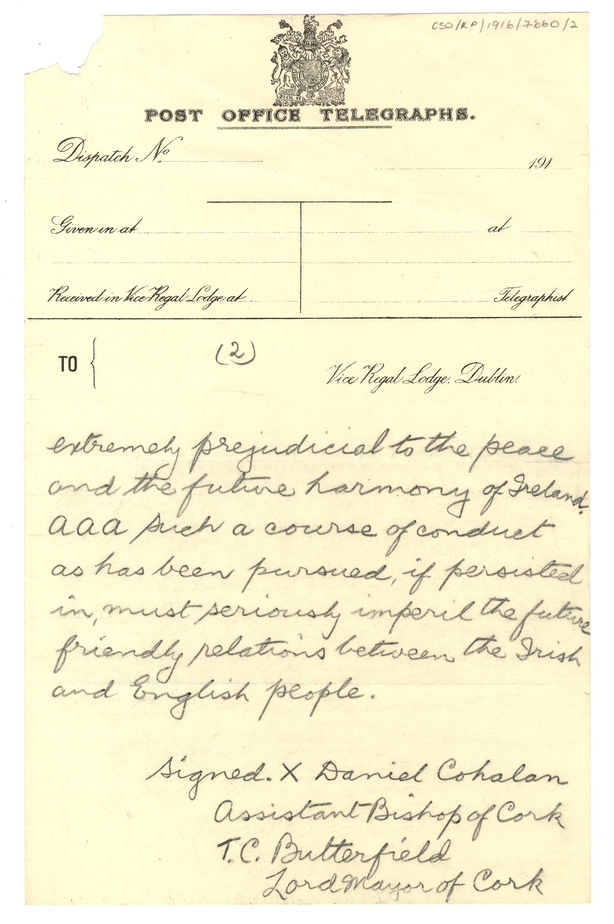 CSO/RP/1916/7860/2
POST OFFICE TELEGRAPHS.
Dispatch No. 191
Given in at at
Received in Vice Regal Lodge at Telegraphist
TO { (2)
Vice Regal Lodge, Dublin.
extremely prejudicial to the peace
and the future harmony of Ireland.
aaa Such a course of conduct
as has been pursued, if persisted
in, must seriously imperil the future
friendly relations between the Irish
and English people.
Signed. X Daniel Cohalan
Assistant Bishop of Cork
T.C. Butterfield
Lord Mayor of Cork